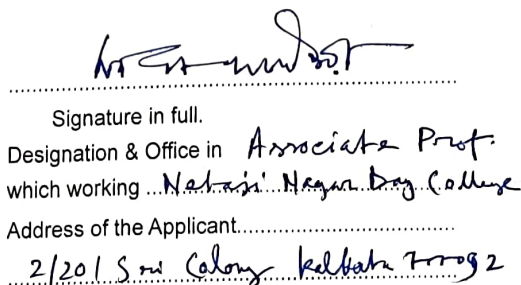 Signature in full.
Designation & Office in Associate Prof.
which working ...Netaji Nagar Day College
Address of the Applicant...................................
2/201 Sri Colony Kolkata 700092